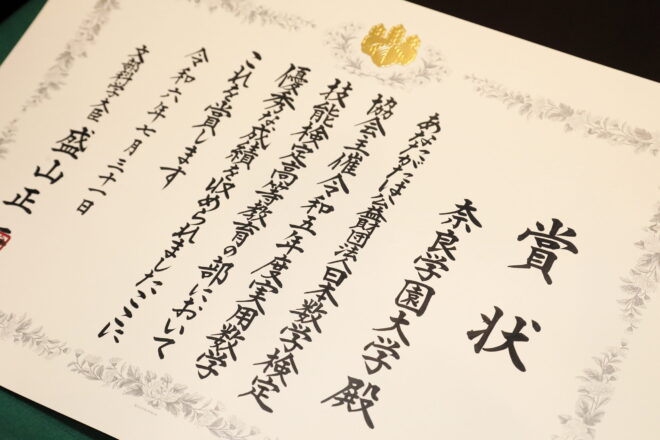 賞状
奈良学園大学殿
あなたがたは公益財団法人日本数学検定
協会主催令和五年度実用数学
技能検定高等教育の部において
優秀な成績を収められましたここに
これを賞します
令和六年七月三十一日
文部科学大臣 盛山正